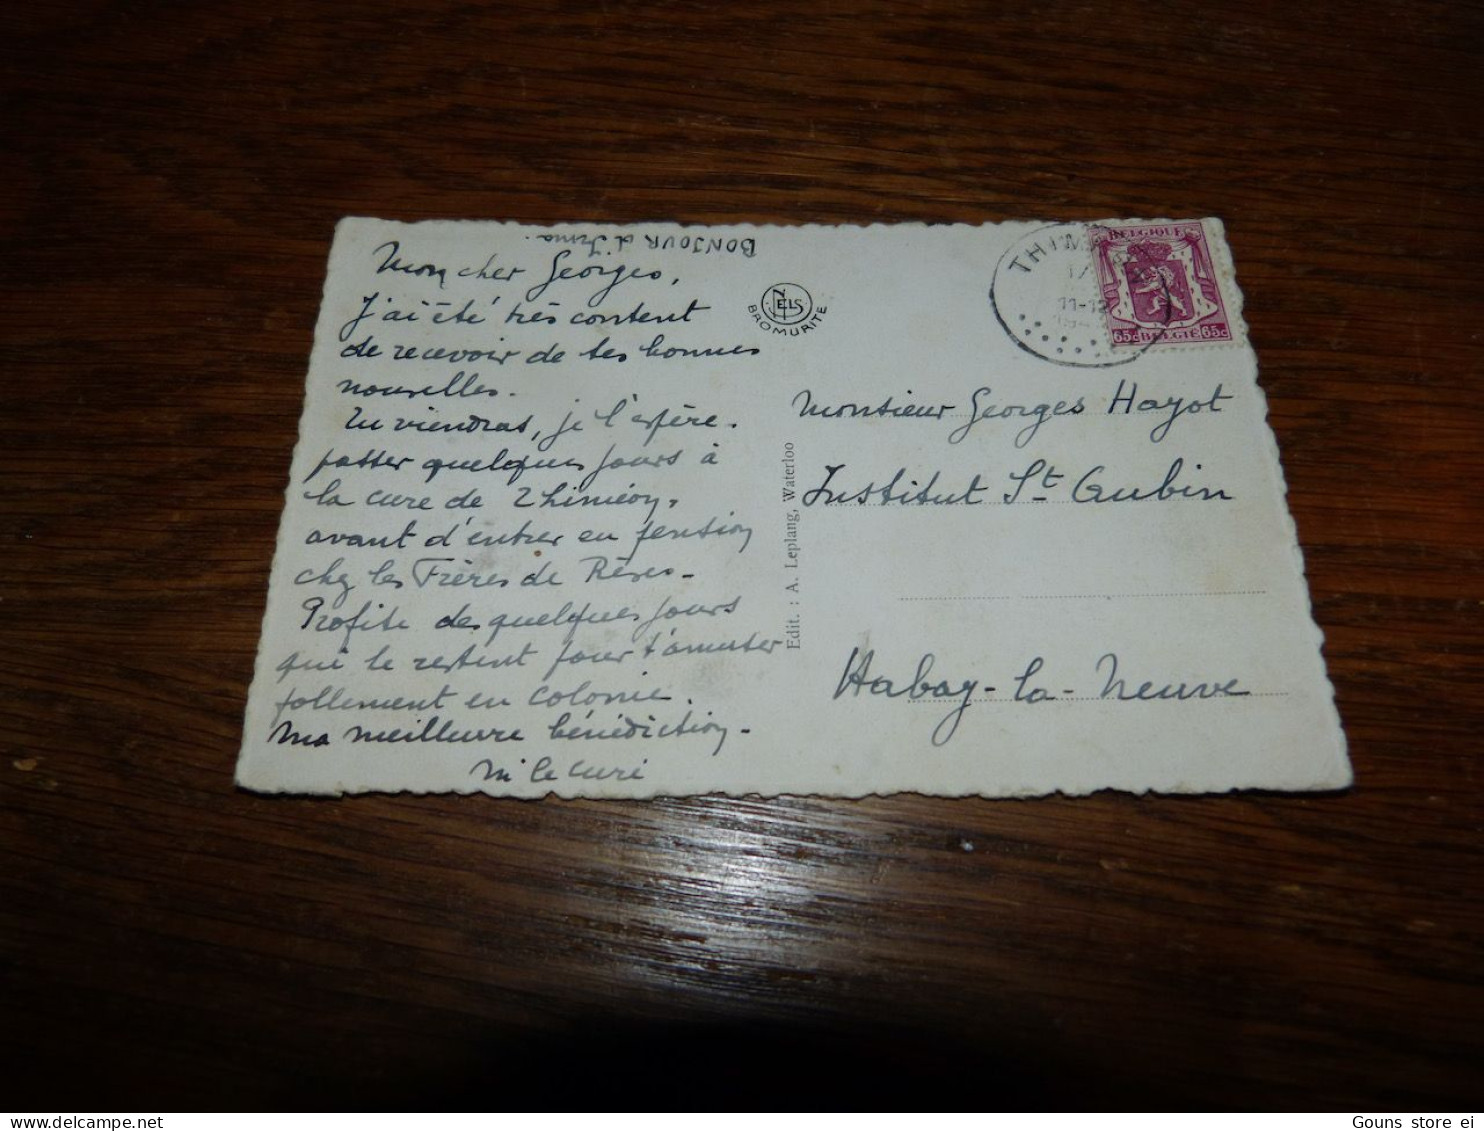 BONJOUR d'Irma.
Mon cher Georges,
J'ai été très content
de recevoir de tes bonnes
nouvelles.
Tu viendras, je l'espère.
passer quelques jours à
la cure de Thiméon,
avant d'entrer en pension
chez les Frères de Rêves.
Profite des quelques jours
qui te restent pour t'amuser
follement en colonie.
Ma meilleure bénédiction.
le curé
NELS
BROMURITE
Edit. : A. Leplang, Waterloo
11-12
BELGIQUE
65c BELGIE 65c
Monsieur Georges Hayot
Institut St Aubin
Habay-la-Neuve
Gouns store ei